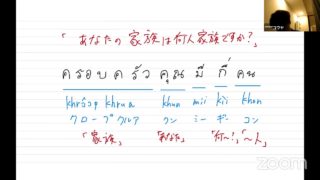 「あなたの家族は何人家族ですか?」
ครอบครัว คุณ มี กี่ คน
khrôɔp khrua khun mii kìi khon
クロープクルア クン ミー ギー コン
「家族」 「あなた」 「何〜?」「〜人」
zoom